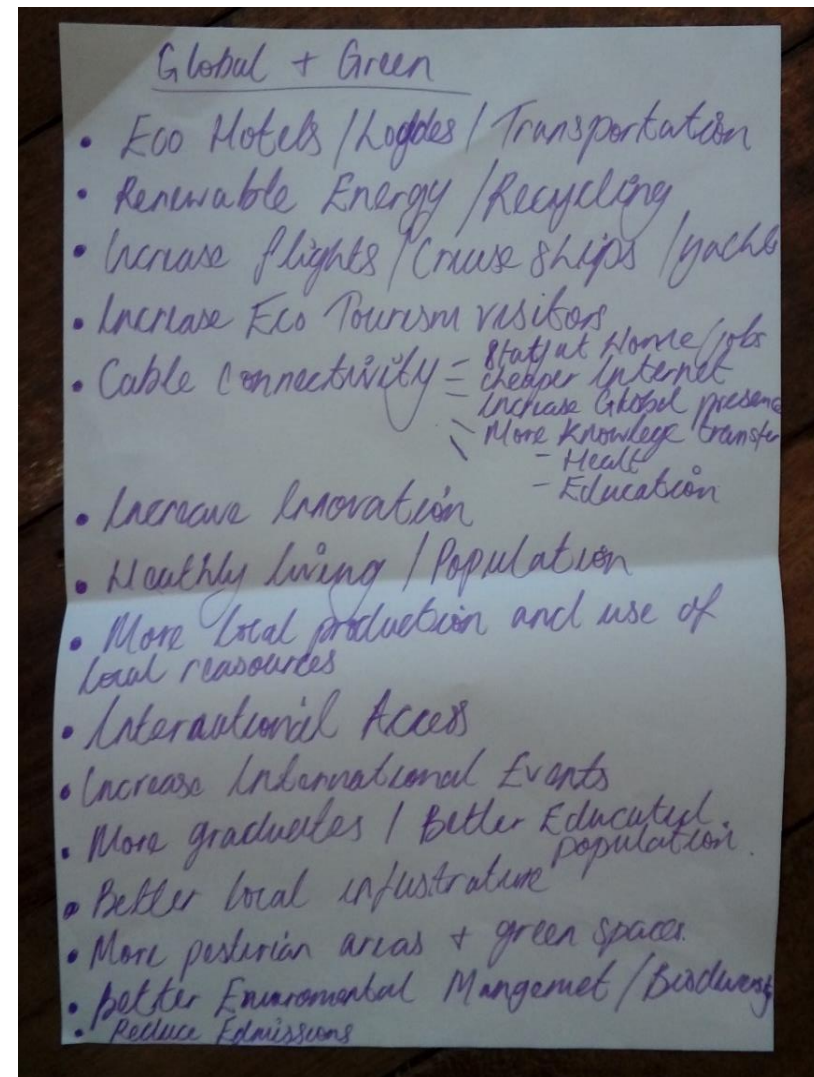 Global + Green
• Eco Hotels / Logdes / Transportation
• Renewable Energy / Recycling
• Increase flights / Cruise ships / yachts
• Increase Eco Tourism visitors
• Cable Connectivity = Stay at Home / jobs
= cheaper internet
Increase Global presence
\ More Knowlege transfer
\ - Healt
- Education
• Increase Innovation
• Healthly living / Population
• More local production and use of
local reasources
• International Access
• Increase International Events
• More graduates / Better Educated
population.
• Better local infustrature
• More pesterian areas + green spaces.
• Better Enviromental Mangemet / Biodiversity
• Reduce Edmissions